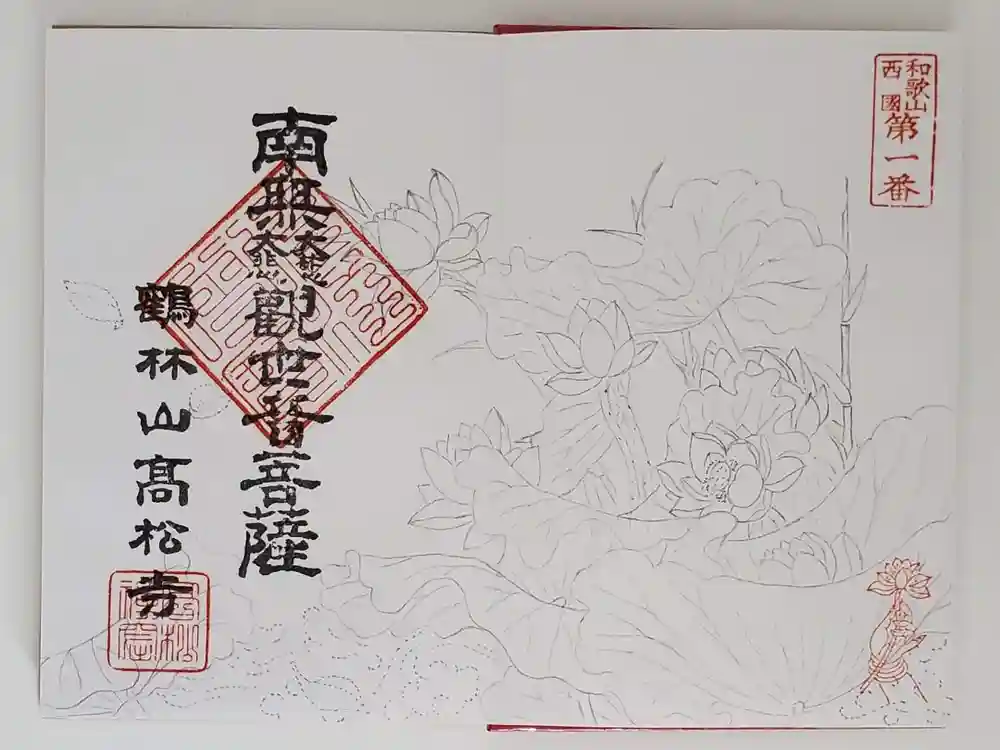 和歌山
西國
第一番
南無大慈大悲觀世音菩薩
鶴林山髙松寺